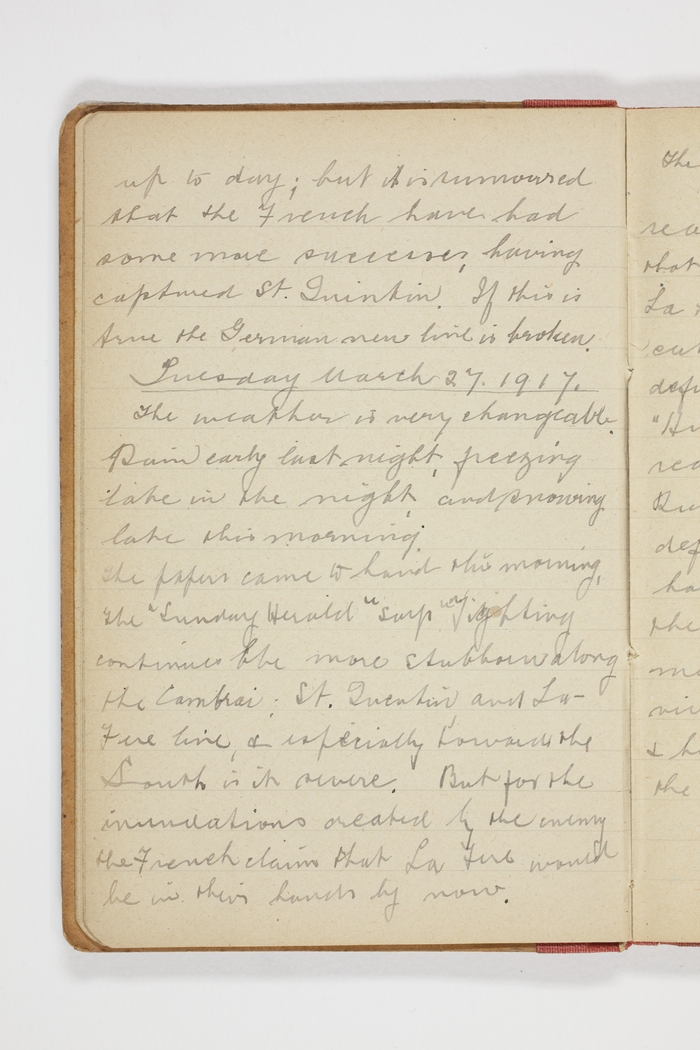 up to day; but it is rumoured
that the French have had
some more successes, having
captured St. Quintin. If this is
true the German new line is broken.
Tuesday March 27. 1917.
The weather is very changeable.
Rain early last night, freezing
late in the night, and snowing
late this morning.
The papers came to hand this morning,
The "Sunday Herald" says "Fighting
continues to be more stubborn along
the Cambrai : St. Quentin and La-
Fere line, & especially towards the
South is it severe. But for the
inundations created by the enemy
the French claim that La Fere would
be in their hands by now.
The
rea
that
La
cut
defe
rea
def
ha
the
& h
the